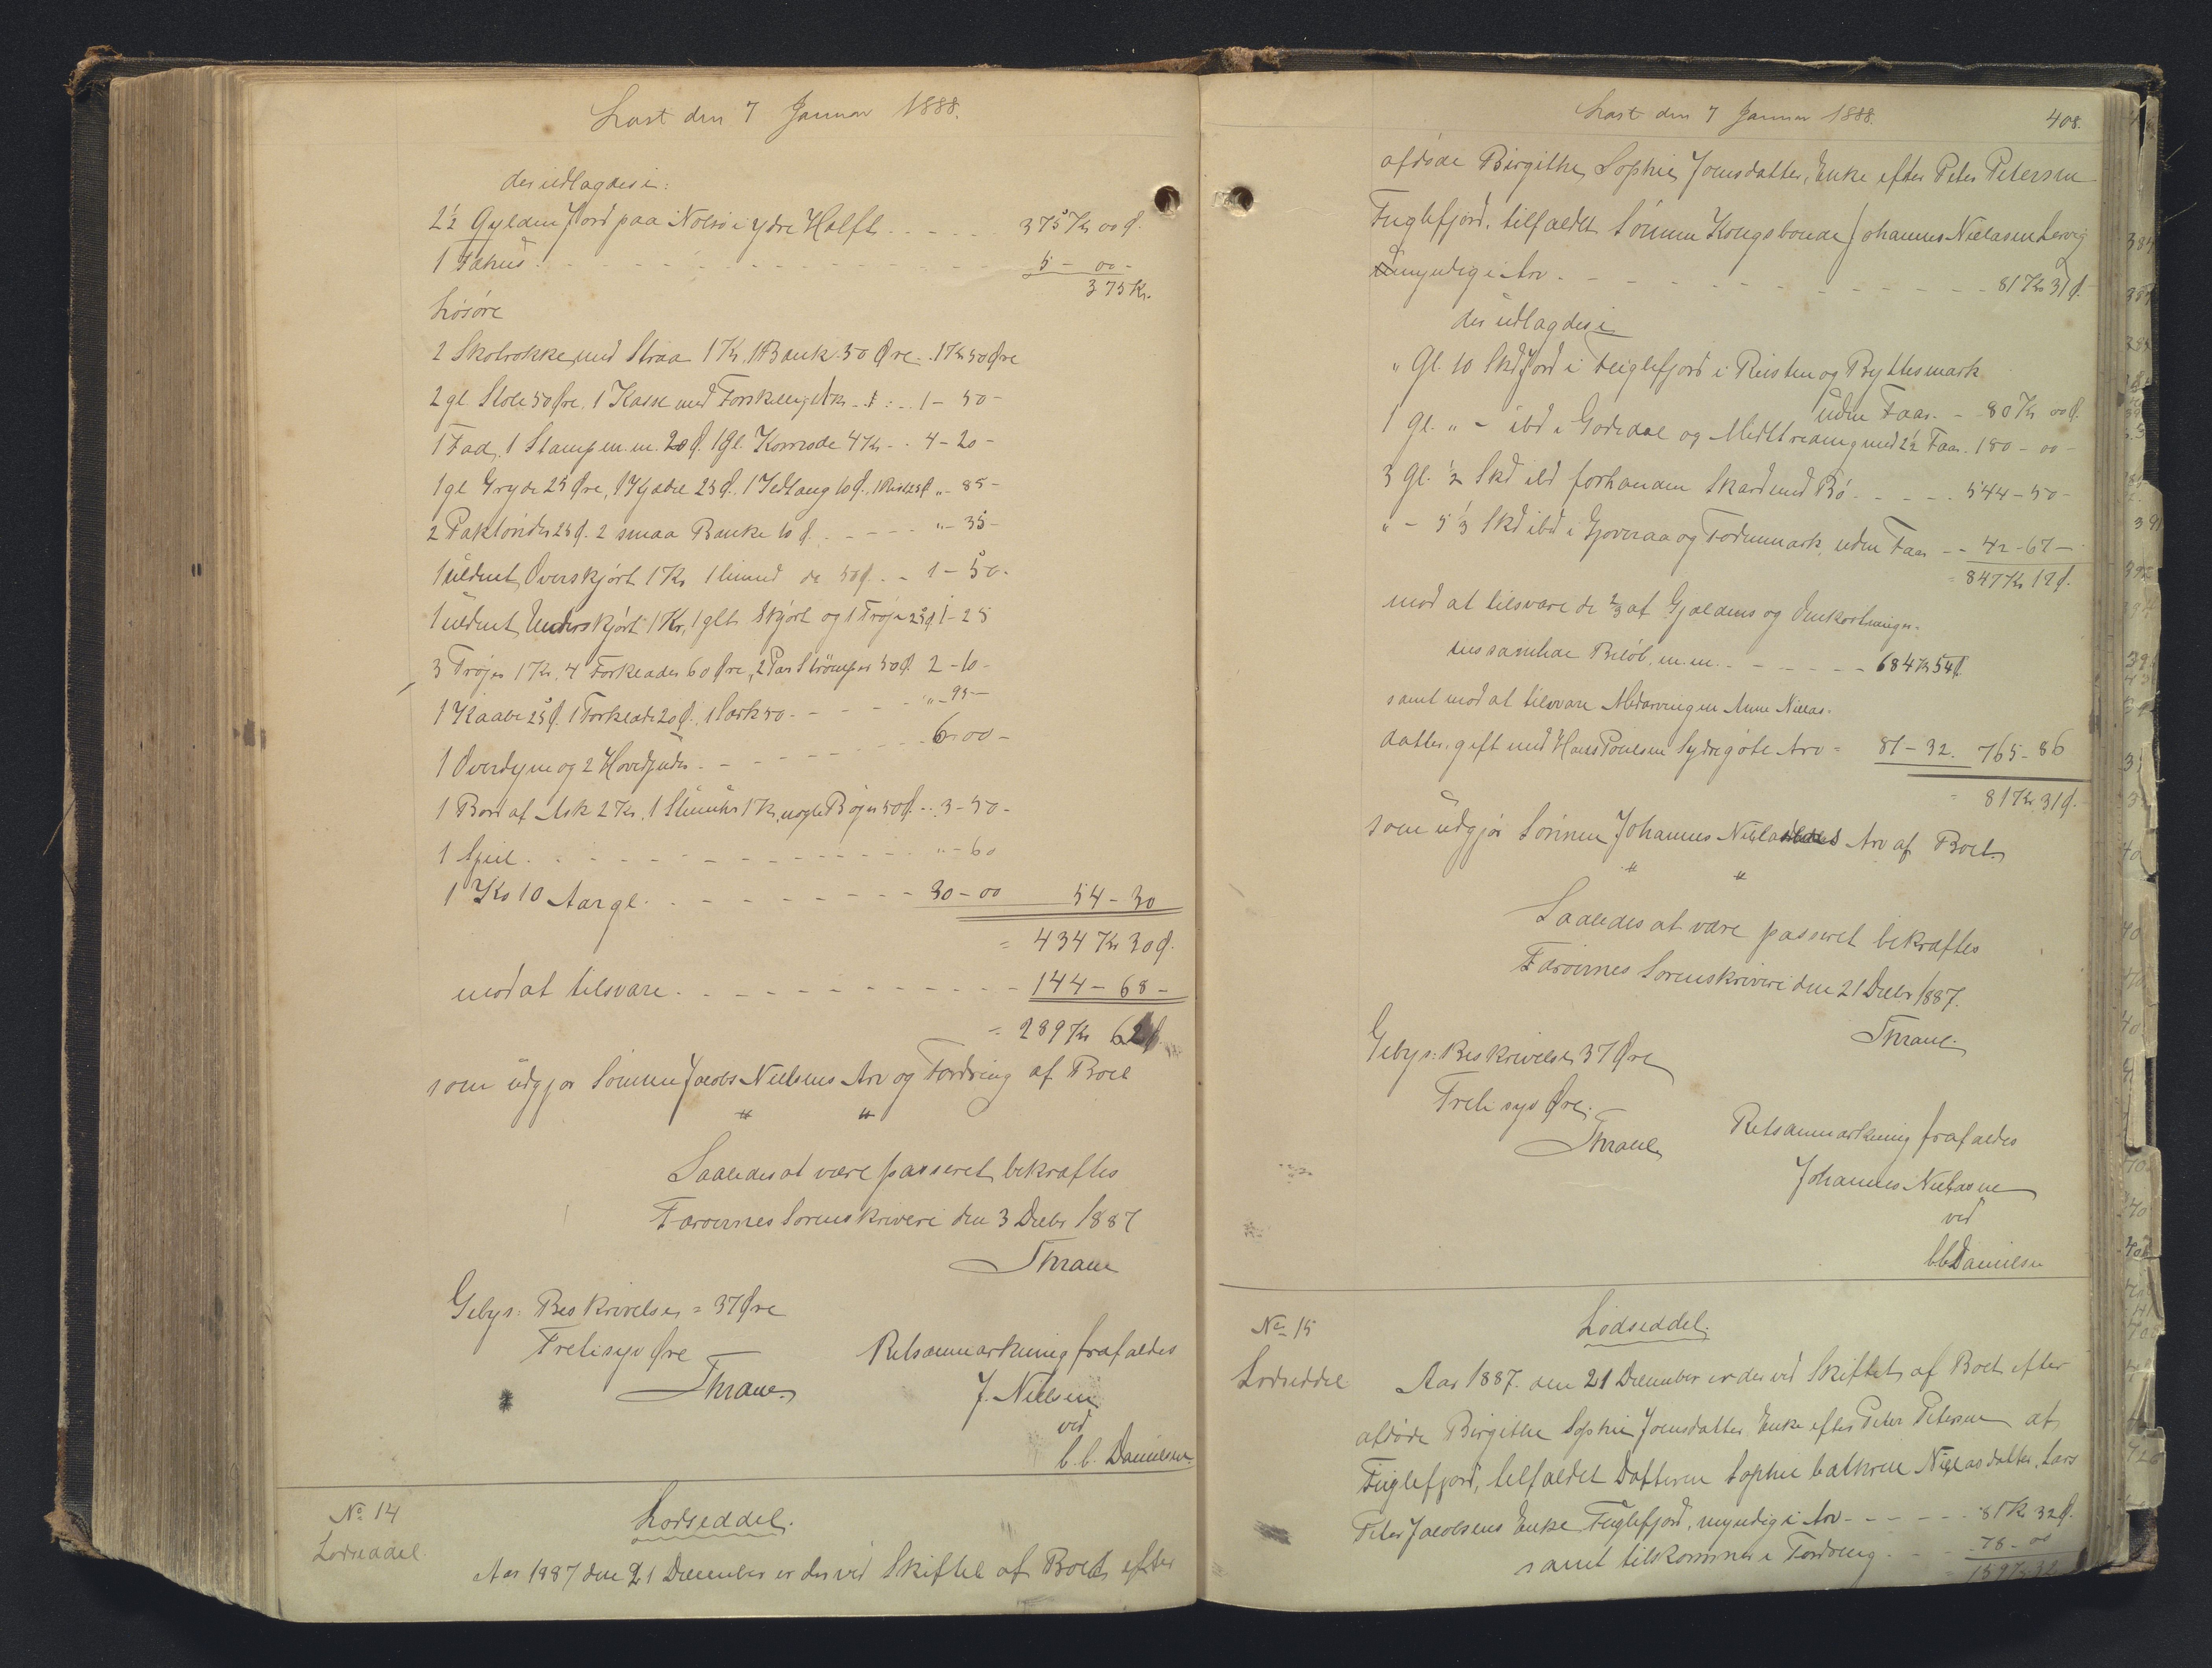 Læst den 7 Januar 1888.
der udlagdes i:
2½ Gylden Jord paa Nolsø i ydre Halft - - - - - 375 Kr 00 Ø.
1 - - - - - 5 - 00 -
375 Kr.
Løsøre
2 Skotrokke med Straa 1 Kr. 1 Bænk 50 Øre - 1 Kr 50 Øre
2 gl Stole 50 Øre, 1 Kasse med - 1 - 50 -
1 Fad, 1 Stamp m. m. 20 Ø. 1 Gl. Komode 4 Kr - - 4 - 20 -
1 gl Gryde 25 Øre, 1 Kjedel 25 Ø, 1 Ildtang 10 Ø, 1 25 Ø " - 85 -
2 25 Ø. 2 smaa Bænke 10 Ø. - - - - " - 35 -
1 uldent Overskjørt 1 Kr 1 linned do 50 Ø. - - 1 - 50 -
1 uldent Underskjørt 1 Kr, 1 glt Skjört og 1 Trøje 25 Ø 1 - 25
3 Trøjer 1 Kr. 4 Forklæder 60 Øre, 2 Par Strömper 50 Ø 2 - 10 -
1 Kaabe 25 Ø. 1 Forklæde 20 Ø, 1 Særk 50 - - - - - " - 95 -
1 Overdyne og 2 Hovedpuder - - - - - 6 - 00 -
1 Bord af Ask 2 Kr, 1 Stueuhr 1 Kr, nogle Bøger 50 Ø - - 3 - 50 -
1 Speil - - - - - " - 60
1 Ko 10 Aar gl. - - - - - 30 - 00 54 - 30
= 434 Kr 30 Ø.
mod at tilsvare - - - - - 144 - 68 -
= 289 Kr 62 Ø.
som udgjør Sønnen Jacobs Nielsens Arv og Fordring af Boet
" "
Saaledes at være passeret bekræftes
Færøernes Sorenskriveri den 3 Decbr 1887
Thrane
Gebyr: Beskrivelse = 37 Øre
Tretisyv Øre
Thrane
Retsanmærkning frafaldes
J. Nielsen
ved
C. C. Danielsen
No 14
Lodseddel
Lodseddel.
Aar 1887 den 21 December er der ved Skiftet af Boet efter
Læst den 7 Januar 1888. 408.
afdøde Birgithe Sophie Joensdatter, Enke efter Peter Petersen
Fuglefjord, tilfaldet Sønnen Kongsbonde Johannes Nielasen Lervig
myndig i Arv - - - - - 81 Kr 31 Ø.
der udlagdes i
" Gl. 10 Skd Jord i Fuglefjord i Rüsten og Ryttesmark
uden Faar - 80 Kr 00 Ø.
1 Gl. " - ibd i Godedal og med 2½ Faar. 180 - 00 -
3 Gl. ½ Skd ibd forhanden Skard med Bö - - - - - 544 - 50 -
" - 5⅓ Skd ibd i Gjoveraa og Fodummark, uden Faar - - 42 - 67 -
= 847 Kr 17 Ø.
mod at tilsvare de ⅔ af Gjældens og Omkostninger-
nes samlede Beløb, m. m. - - - - - 684 Kr 54 Ø.
samt mod at tilsvare Medarvingen Anne Nielas-
datter, gift med Hans Poulsen Sydregöte Arv = 81 - 32. 765 - 86
= 81 Kr 31 Ø.
som udgjør Sønnen Johannes Arv af Boet.
" "
Saaledes at være passeret bekræftes
Færøernes Sorenskriveri den 21 Decbr 1887.
Thrane.
Gebyr: Beskrivelse 37 Øre
Treti syv Øre.
Thrane
Retsanmærkning frafaldes
Johannes Nielasen
ved
C. C. Danielsen
No 15
Lodseddel
Lodseddel.
Aar 1887. den 21 December er der ved Skiftet af Boet efter
afdøde Birgithe Sophie Joensdatter Enke efter Peter Petersen af
Fuglefjord, tilfaldet Datteren Sophie Cathrine Nielasdatter, Lars
Peter Jacobsens Enke Fuglefjord, myndig i Arv - - - - - 81 Kr 32 Ø.
samt tilkommer i Fordring - - - 78 - 00
= 159 Kr 32